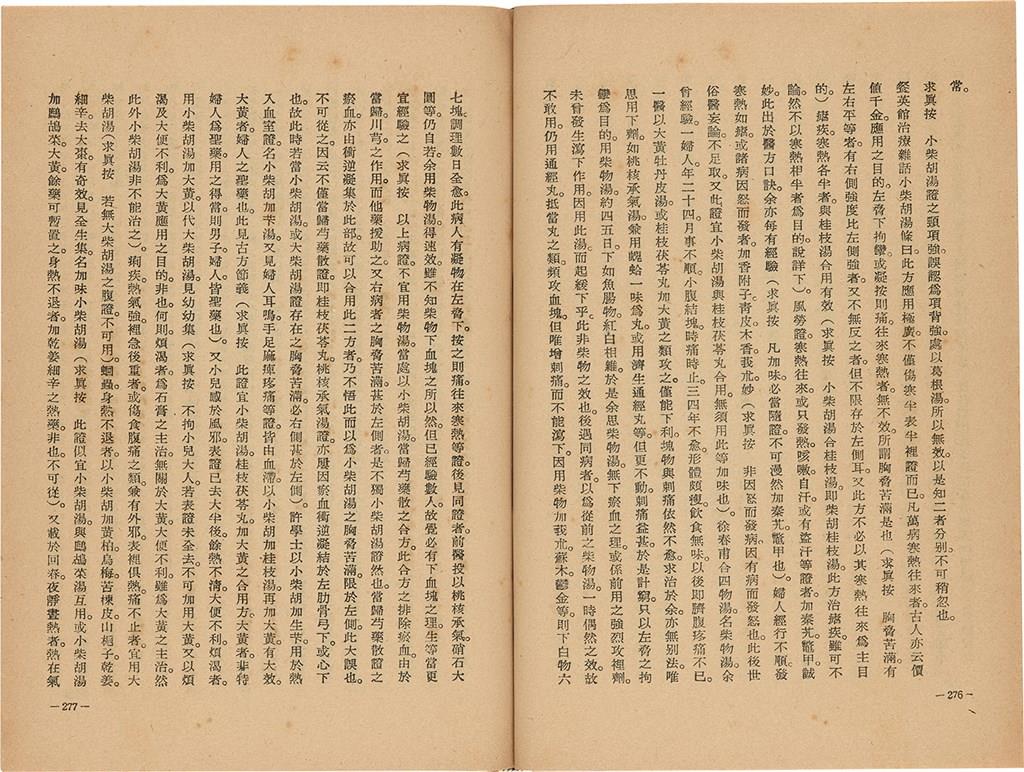 常。
求眞按　小柴胡湯證之頸項強誤認爲項背強處以葛根湯所以無效以是知二者分別不可稍忽也。
餐英館治療雜話小柴胡湯條曰此方應用極廣不僅傷寒半表半裡證而已凡萬病寒熱往來者古人亦云價
値千金應用之目的左脅下拘攣或凝按則痛往來寒熱者無不效所謂胸脅苦滿是也（求眞按　胸脅苦滿有
左右平等者有右側強度比左側強者又不無反之者但不限存於左側耳又此方不必以其寒熱往來爲主目
的）瘧疾寒熱各半者與桂枝湯合用有效（求眞按　小柴胡湯合桂枝湯即柴胡桂枝湯此方治瘧疾雖可不
論然不以寒熱相半者爲目的說詳下）風勞證寒熱往來或只發熱咳嗽自汗或有盜汗等證者加秦艽鼈甲誠
妙此出於醫方口訣余亦每有經驗（求眞按　凡加味必當隨證不可漫然加秦艽鼈甲也）婦人經行不順發
寒熱如瘧或諸病因怒而發者加香附子青皮木香莪朮妙（求眞按　非因怒而發病因有病而發怒也此後世
俗醫妄論不足取又此證宜小柴胡湯與桂枝茯苓丸合用無須用此等加味也）徐春甫合四物湯名柴物湯余
曾經驗一婦人年二十四月事不順小腹結塊時痛時止三四年不愈形體頗瘦飲食無味以後即臍腹疼痛不已
一醫以大黃牡丹皮湯或桂枝茯苓丸加大黃之類攻之僅能下利穢物與刺痛依然不愈求治於余亦無別法唯
思用下劑如桃核承氣湯兼用螝蛤一味爲丸或用濟生通經丸等但更不動刺痛益甚於是計窮只以左脅之拘
攣爲目的用柴物湯約四五日下如魚腸物紅白相雜於是余思柴物湯無下瘀血之理或係前用之強烈攻裡劑
未曾發生瀉下作用因用此湯而起緩下乎此非柴物之效也後遇同病者以爲從前之柴物湯一時偶然之效故
不敢用仍用通經丸抵當丸之類頻攻血塊但唯增刺痛而不能瀉下因用柴物加莪朮蘇木鬱金等則下白物六
－276－
七塊調理數日全愈此病人有凝物在左脅下按之則痛往來寒熱等證後見同證者前醫投以桃核承氣硝石大
圓等仍目若余用柴物湯得速效雖不知柴物下血塊之所以然但已經驗數人故覺必有下血塊之理生等當更
宜經驗之（求眞按　以上病證不宜用柴物湯當處以小柴胡湯當歸芍藥散之合方此合方之排除瘀血由於
當歸川芎之作用而他藥援助之又右病者之胸脅苦滿甚於左側者是不獨小柴胡湯證然也當歸芍藥散證之
瘀血亦由衝逆凝集於此部故可以合用此二方者乃不悟此而以爲小柴胡湯之胸脅苦滿限於左側此大誤也
不可從之因云不僅當歸芍藥散證即桂枝茯苓丸桃核承氣湯證亦屢因瘀血衝逆凝結於左肋骨弓下或心下
也故此時若當小柴胡湯或大柴胡湯證存在之胸脅苦滿必右側甚於左側。許學士以小柴胡加生芐用於熱
入血室證名小柴胡加芐湯又見婦人耳鳴手足麻痺疼痛等證皆由血滯以小柴胡加桂枝湯再加大黃有大效
大黃者婦人之聖藥也此見古方節義（求眞按　此證宜小柴胡湯桂枝茯苓丸加大黃之合用方大黃者非特
婦人爲聖藥用之得當則男子婦人皆聖藥也）又小兒感於風邪表證已去大半後餘熱不淸大便不利煩渴者
用小柴胡湯加大黃以代大柴胡湯見幼幼集（求眞按　不拘小兒大人若表證未全去不可加用大黃又以煩
渴及大便不利爲大黃應用之目的非也何則煩渴者爲石膏之主治無關於大黃大便不利雖爲大黃之主治然
此外小柴胡湯非不能治之）痢疾熱氣強裡急後重者或傷食腹痛之類兼有外邪表裡俱熱痛不止者宜用大
柴胡湯（求眞按　若無大柴胡湯之腹證不可用）蛔蟲身熱不退者以小柴胡加黃柏烏梅苦楝皮山梔子乾姜
細辛去大棗有奇效見全生集名加味小柴胡湯（求眞按　此證似宜小柴胡湯與鷓鴣菜湯互用或小柴胡湯
加鷓鴣菜大黃餘藥可暫置之身熱不退者加乾姜細辛之熱藥非也不可從）又載於回春夜靜晝熱者熱在氣
－277－